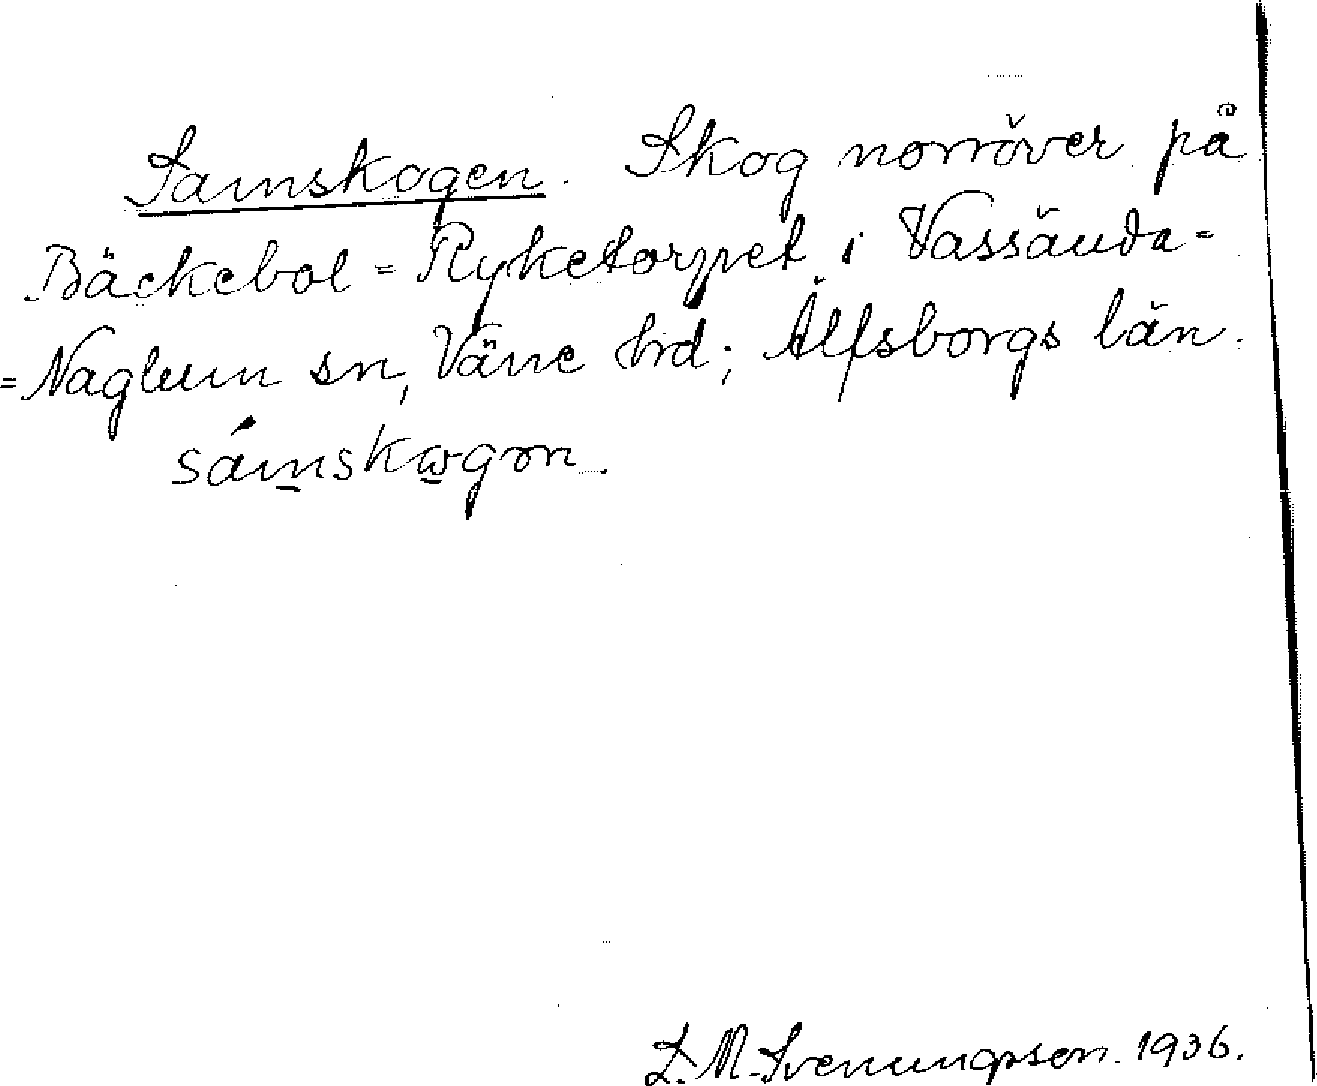 Samskogen. Skog norröver på
Bäckebol = Ryketorpet i Vassända=
=Naglum sn, Väne hrd; Älfsborgs län.
sámskωgən.
L. M. Svenungsson. 1936.